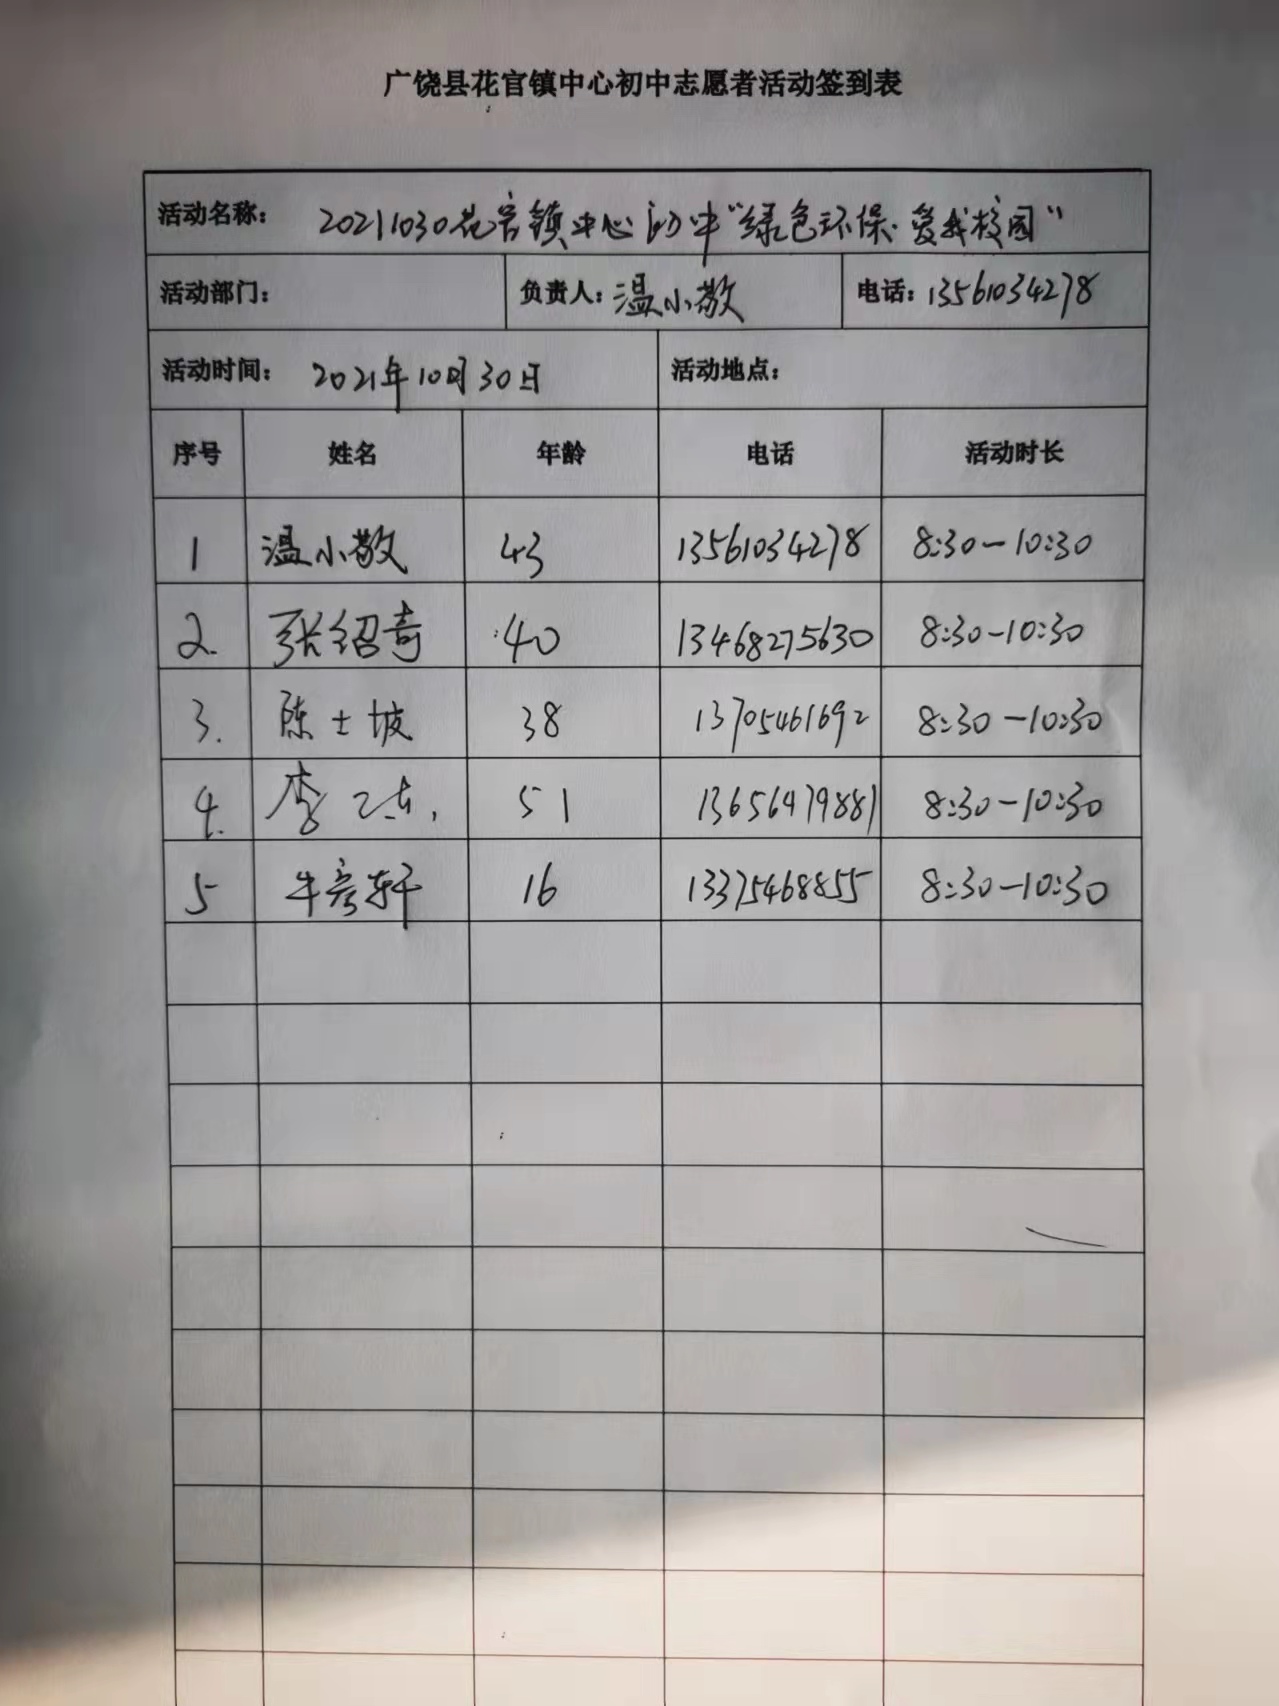 广饶县花官镇中心初中志愿者活动签到表
活动名称: 20211030花官镇中心初中“绿色环保·爱我校园”
活动部门: 负责人: 温小敬 电话: 13561034278
活动时间: 2021年10月30日 活动地点:
序号 姓名 年龄 电话 活动时长
1 温小敬 43 13561034278 8:30-10:30
2. 张绍奇 40 13468275630 8:30-10:30
3. 陈士坡 38 13705461692 8:30-10:30
4. 李 51 13656479881 8:30-10:30
5 牛彦轩 16 13375468855 8:30-10:30